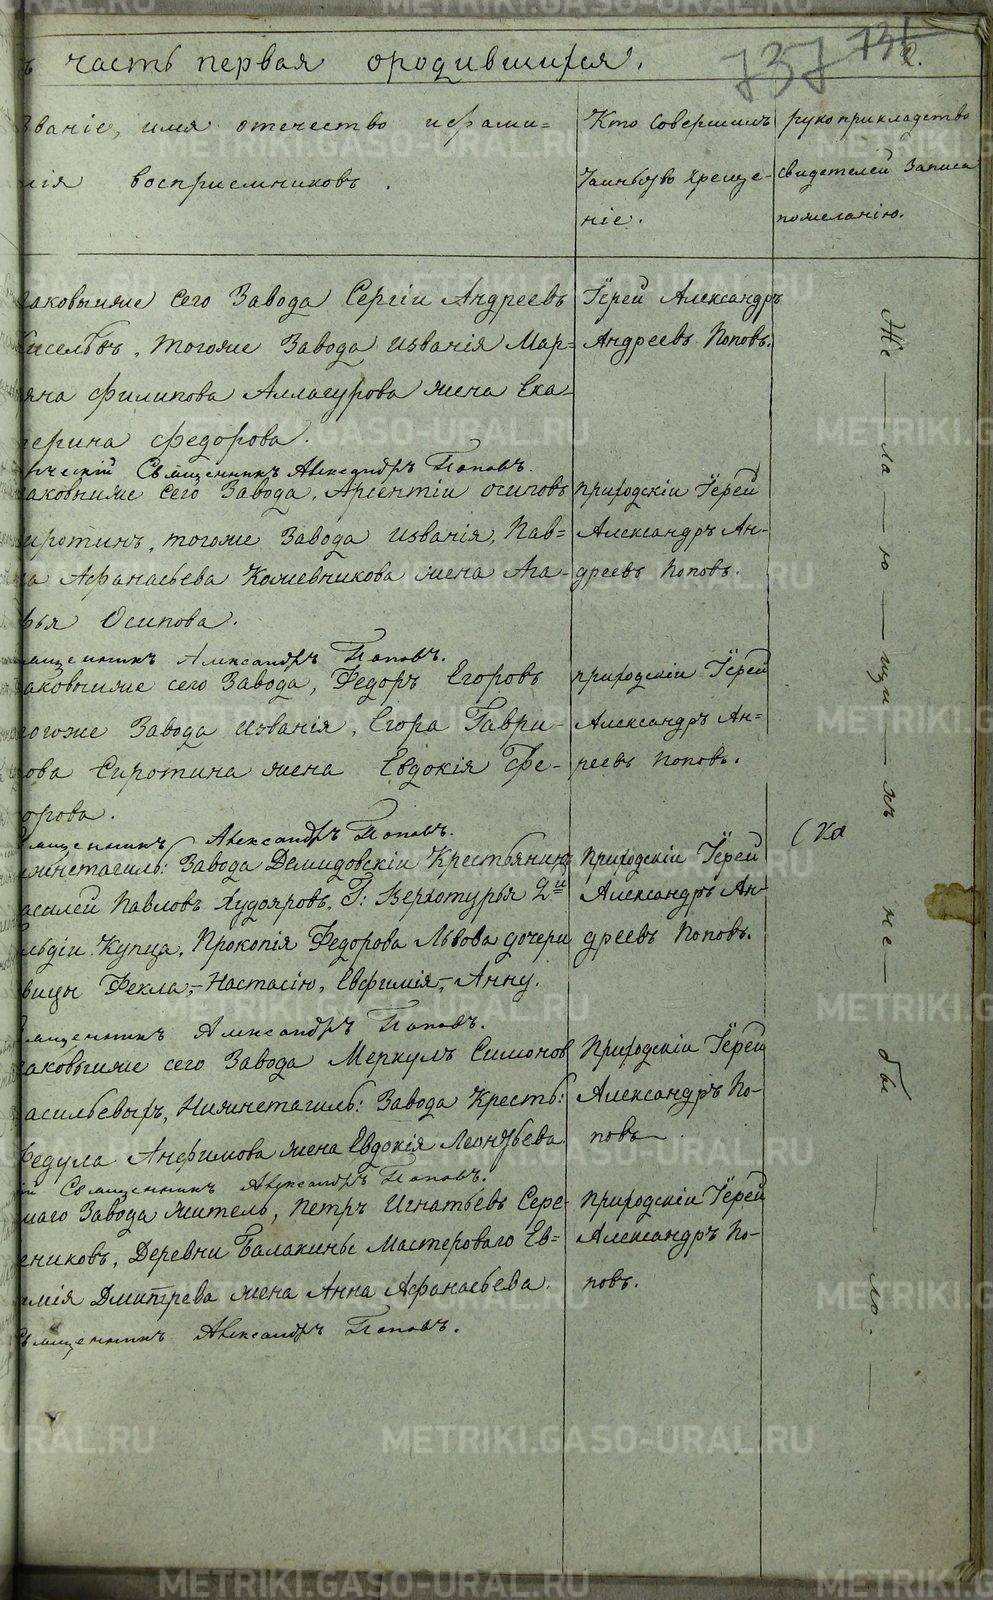 ъ часть первая ородившихся.
737
Званіе, имя отечество ифами=
лія восприемниковъ.
Кто Совершилъ
Таинство Креще=
ніе.
рукоприкладство
свидетелей Записи
пожеланію.
аковыиже сего Завода Сергіи Андреевъ
Киселевъ, тогоже Завода Изванія Мар=
яна Филипова Алласурова жена Ека=
терина Федорова.
Священникъ Александръ Поповъ.
Іерей Александръ
Андреевъ Поповъ.
аковыиже сего Завода, Арсентіи осиповъ
иротинъ, тогоже Завода Изванія, Пав=
ла Афанасьева Кожевникова жена Ага=
фья Осипова.
Священникъ Александръ Поповъ.
приходскіи Іерей
Александръ Ан=
дреевъ Поповъ.
аковыиже сего Завода, Федоръ Егоровъ
тогоже Завода Изванія, Егора Гаври=
лова Сиротина жена Евдокія Фе=
дорова.
Священникъ Александръ Поповъ.
приходскіи Іерей
Александръ Ан=
реевъ Поповъ.
Нижнетагиль: Завода Демидовскіи Крестьянинъ
асилей Павловъ Худояровъ, Г: Верхотурья 2й
ильдіи Купца, Прокопія Федорова Львова дочери
вицы Фекла,=Настасію, Евфимія,= Анну.
Священникъ Александръ Поповъ.
Приходскіи Іерей
Александръ Ан=
дреевъ Поповъ.
аковыиже сего Завода Меркулъ Симонов
асильевыхъ, Нижнетагиль: Завода Кресть:
Федула Анфимова жена Евдокія Леонтьева
Священникъ Александръ Поповъ.
Приходскіи Іерей
Александръ По=
повъ
маго Завода житель, Петръ Игнатьевъ Сере=
ениковъ, Деревни Балакины Мастероваго Ев=
имія Дмитрева жена Анна Афанасьева.
Священникъ Александръ Поповъ.
Приходскіи Іерей
Александръ По=
повъ.
Же — ла — ю — щи — хъ не — бы — ло. —
METRIKI.GASO-URAL.RU